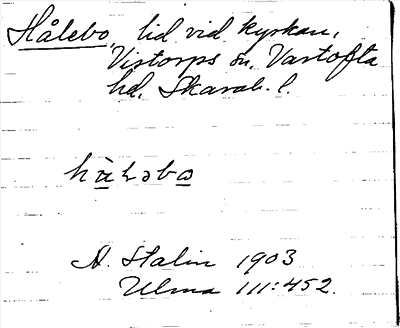 Hålebo, lid vid kyrkan,
Vistorps sn, Vartofta
hd, Skarab. l.
A. Stalin 1903
Ulma 111:452.